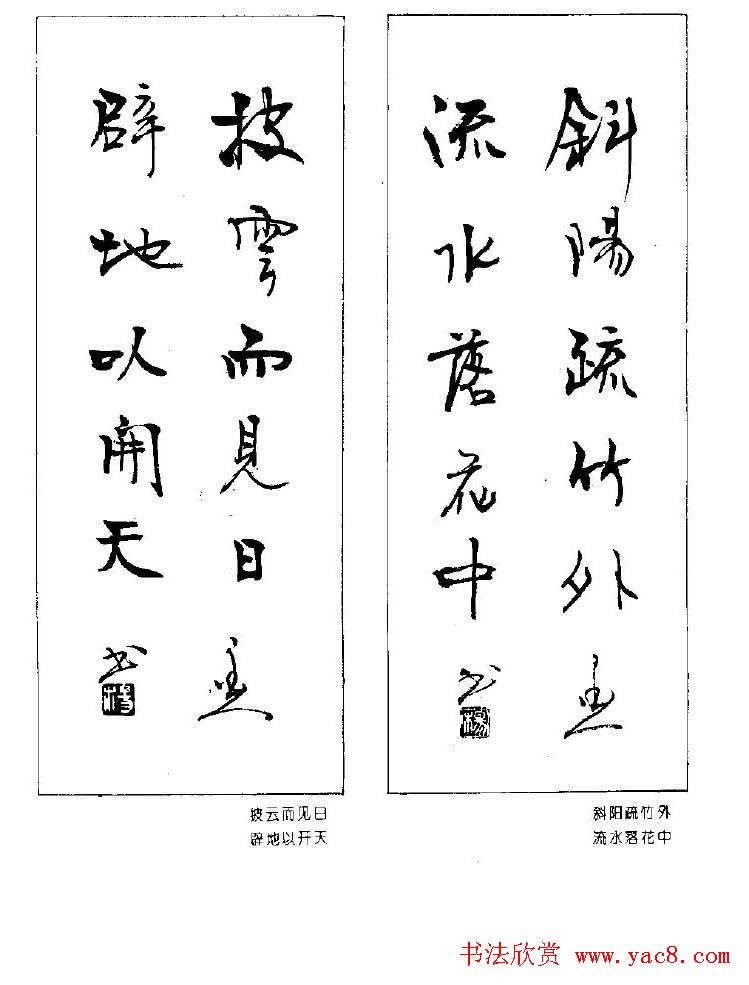 斜陽疏竹外
流水落花中
书
披雲而見日
辟地以開天
书
斜阳疏竹外
流水落花中
披云而见日
辟地以开天
书法欣赏 www.yac8.com